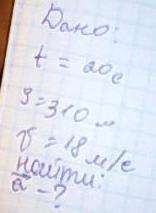 Дано:
t = 20 с
S = 310 м
v = 18 м/с
найти:
a - ?